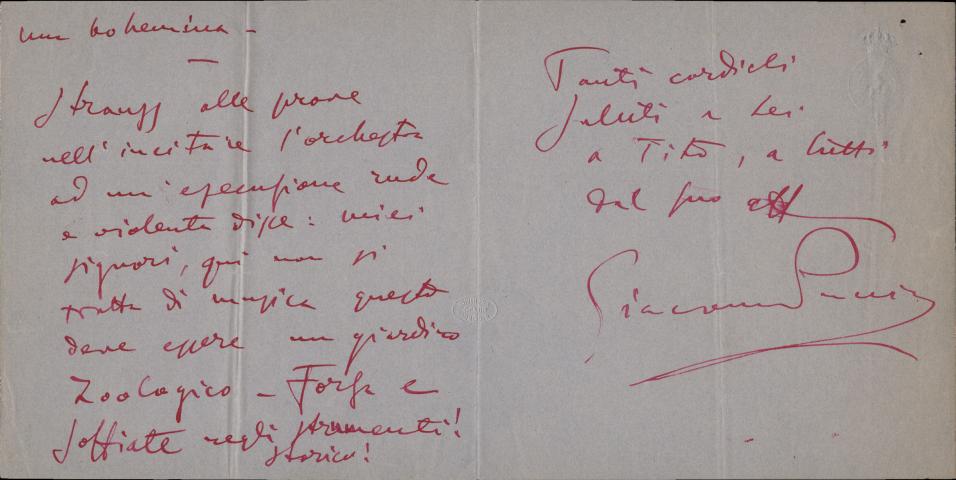 una bohemina -
Strauss alle prove
nell'incitare l'orchestra
ad un'esecuzione rude
e violenta disse: miei
signori, qui non si
tratta di musica questo
deve essere un giardino
Zoologico - Forza e
soffiate negli strumenti!
storico!
Tanti cordiali
saluti a Lei
a Tito, a tutti
dal suo aff
Giacomo Puccini